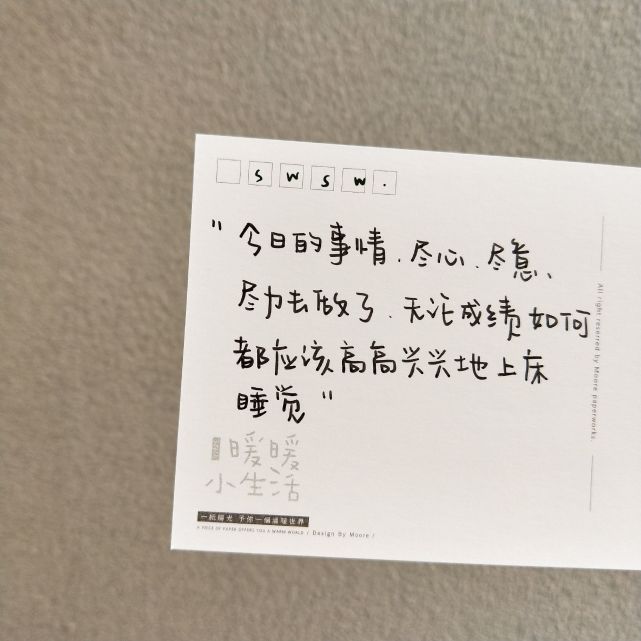 s w s w .
"今日的事情、尽心、尽意、
尽力去做了、无论成绩如何
都应该高高兴兴地上床
睡觉"
暖暖
小生活
一紙陽光 予你一個溫暖世界
A PIECE OF PAPER OFFERS YOU A WARM WORLD / Design By Moore /
All right reserved by Moore paperworks.